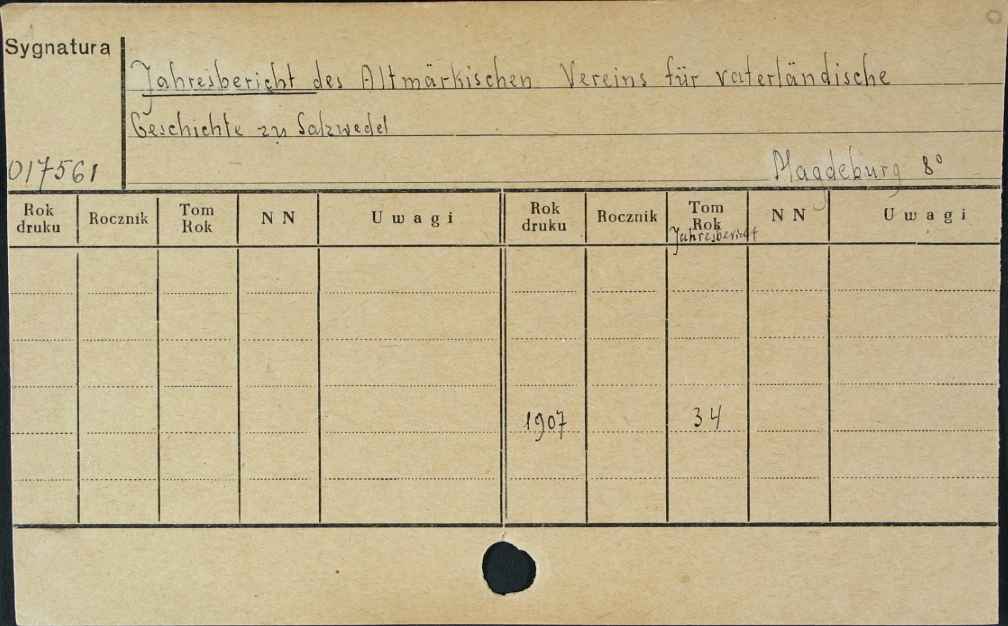 Sygnatura
Jahresbericht des Altmärkischen Vereins für vaterländische
Geschichte zu Salzwedel
017561
Magdeburg 8°
Rok druku Rocznik Tom Rok NN Uwagi Rok druku Rocznik Tom Rok NN Uwagi
Jahresbericht
1907 34